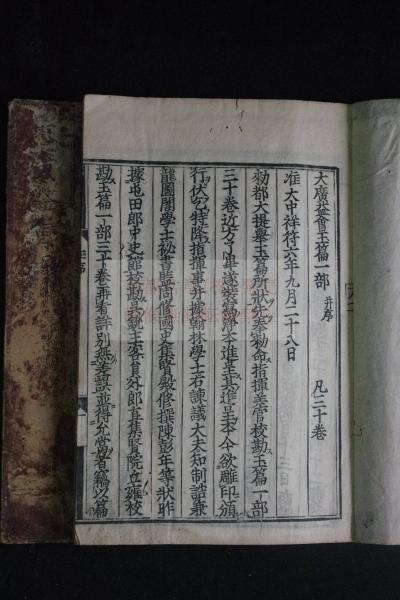 大廣益會玉篇一部 并序 凡三十卷
准大中祥符六年九月二十八日
勑都大提舉玉篇所狀先奉勑命指揮差官校勘玉篇一部
三十卷近方了畢遂裝寫淨本進呈其進呈本今欲雕印頒
行伏乞特降指揮事并據翰林學士右諫議大夫知制誥兼
龍圖閣學士祕書監同修國史集賢殿修撰陳彭年等狀昨
據屯田郎中史館校勘吳銳主客員外郎直集賢院丘雍校
勘玉篇一部三十卷再看詳別無差誤並得允當者篇以篇